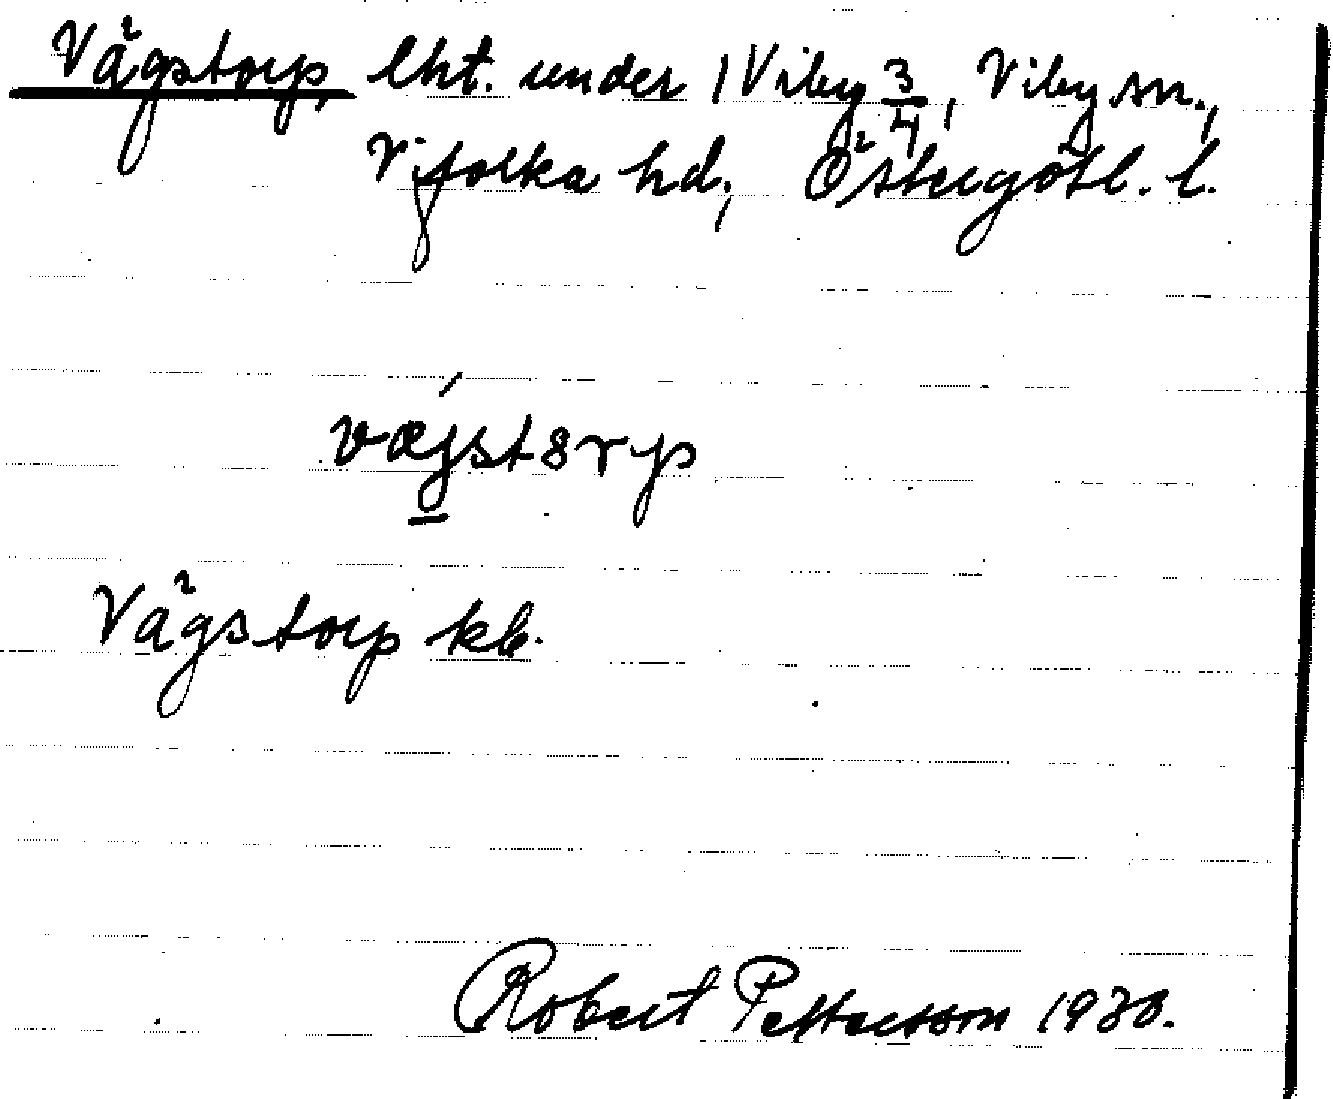 Vägstorp, lht. under 1 Viby 3/4, Viby sn.,
Vifolka hd, Östergötl. l.
væjstȣrp
Vägstorp kb.
Robert Pettersson 1930.